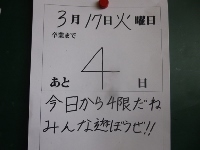 3月17日火曜日
卒業まで
あと 4 日
今日から4限だね
みんな遊ぼうぜ!!